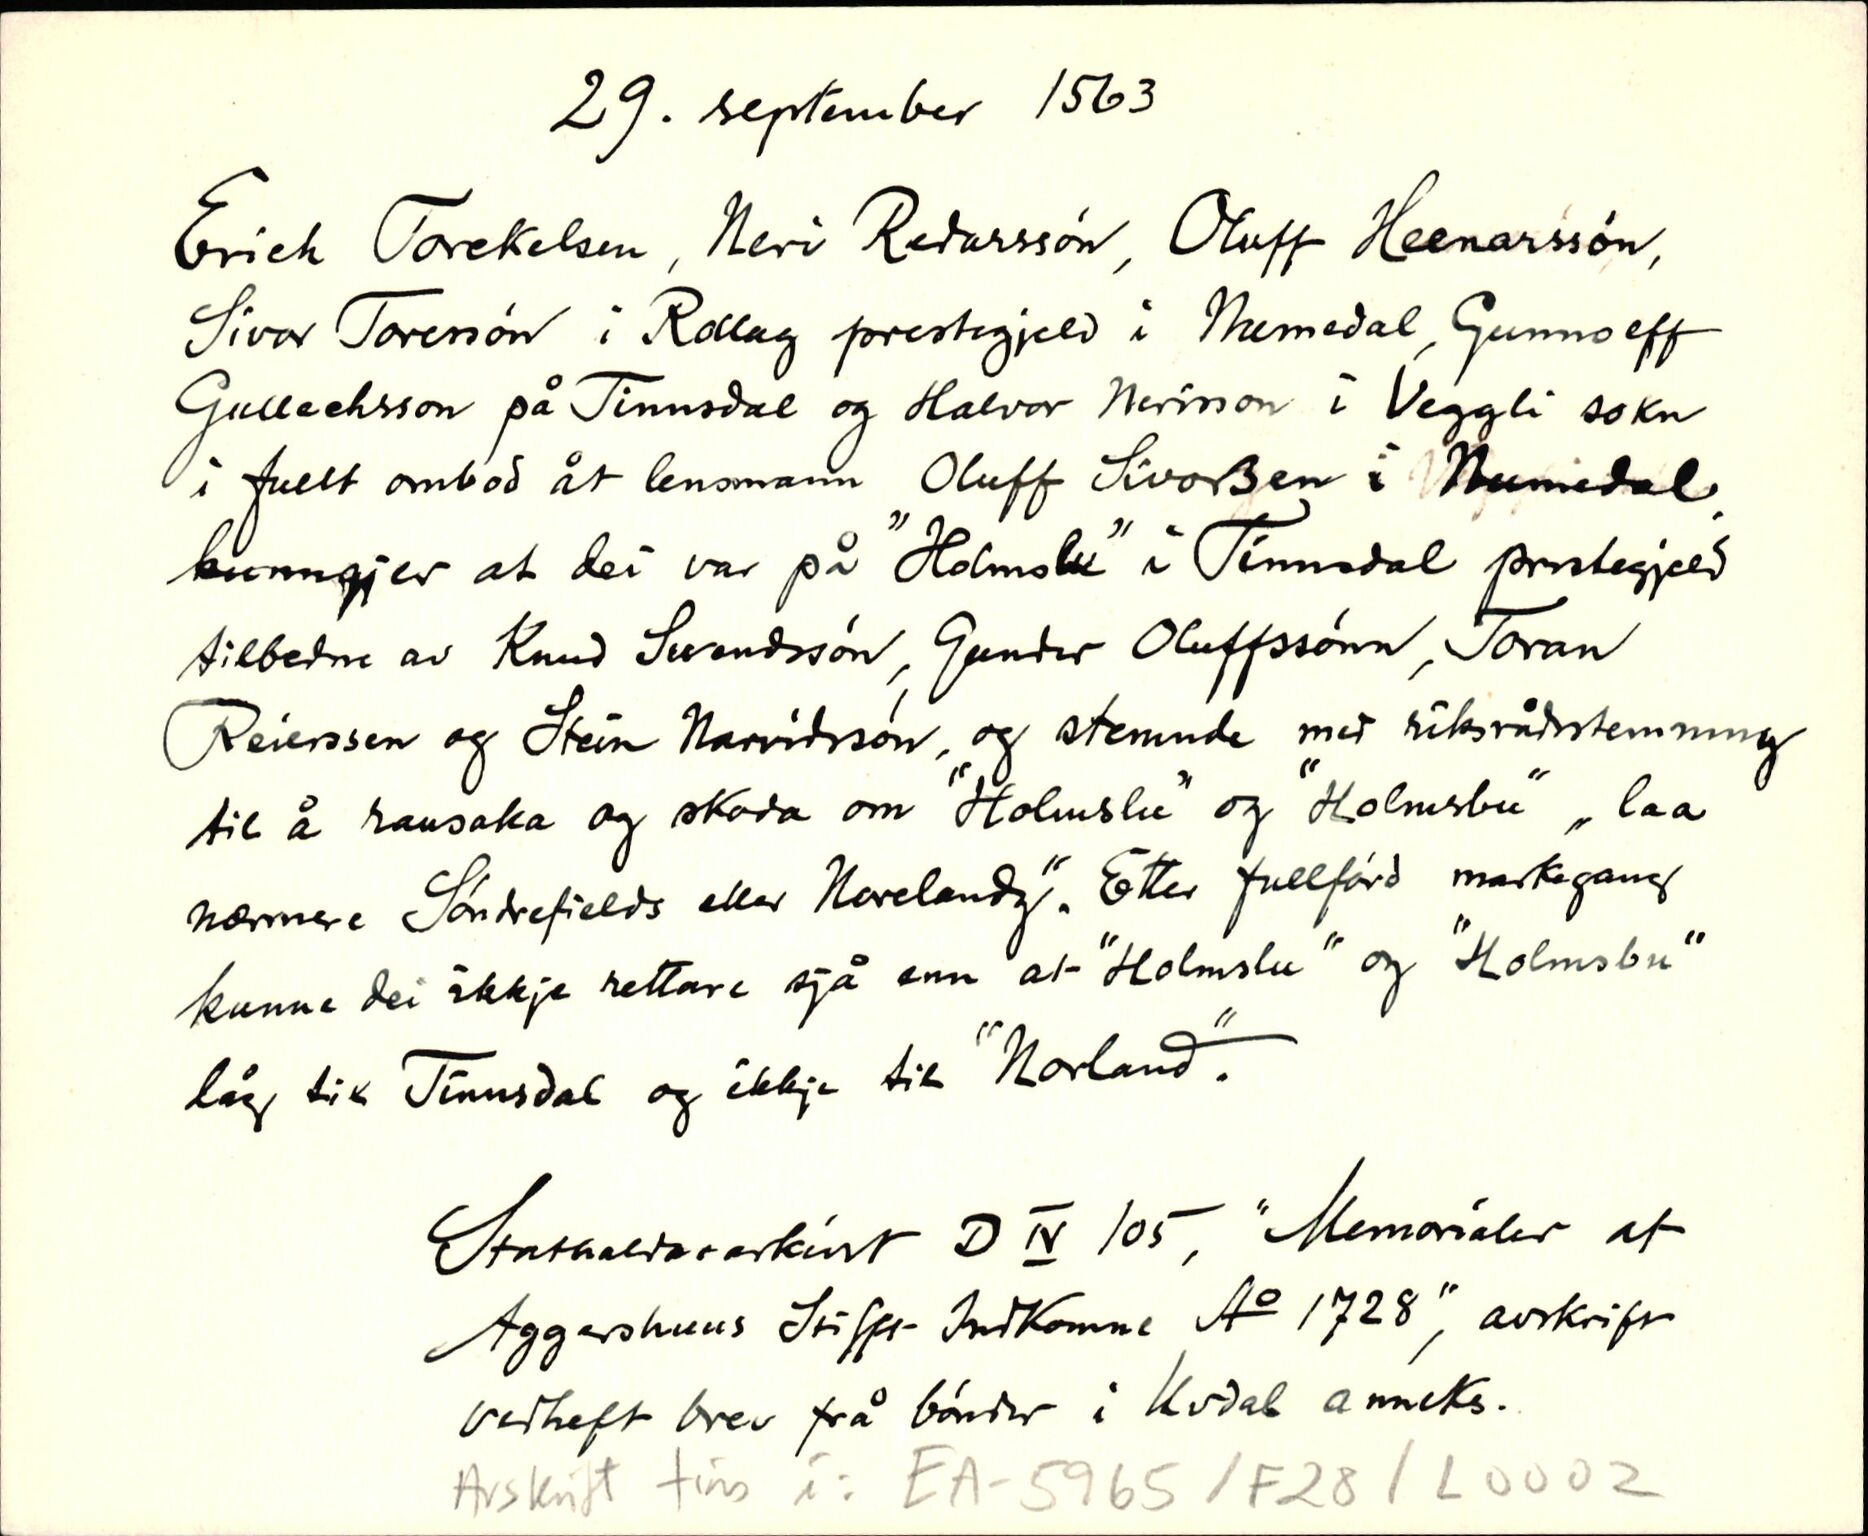 29. september 1563
Erich Torekelsen, Neri Redarssón, Oluff Heenarssón,
Sivor Toressón i Rollag prestegjeld i Numedal, Gunnoleff
Gullechsson på Tinnsdal og Halvor Nerisson i Veggli sokn
i fullt ombod åt lensmann Oluff Sivorßen i Numedal,
kunngjer at dei var på "Holmslu" i Tinnsdal prestegjeld
tilbedne av Knud Svendssón, Gunder Oluffssónn, Toran
Reierssen og Stein Narvidssón, og stemnde med riksrådsstemning
til å ransaka og skoda om "Holmslu" og "Holmsbu" „laa
nærmere Sóndrefields eller Norelandz". Etter fullfórd markegang
kunne dei ikkje rettare sjå enn at "Holmslu" og "Holmsbu"
låg til Tinnsdal og ikkje til "Norland".
Stathaldararkivet D IV 105, "Memorialer af
Aggershuus Stifft Indkomne Aº 1728", avskrift
vedheft brev frå bónder i Uvdal anneks.
Avskrift fins i: EA-5965/F28/L0002